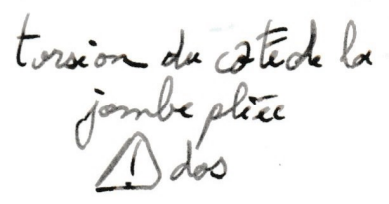 torsion du côté de la
jambe pliée
⚠ dos